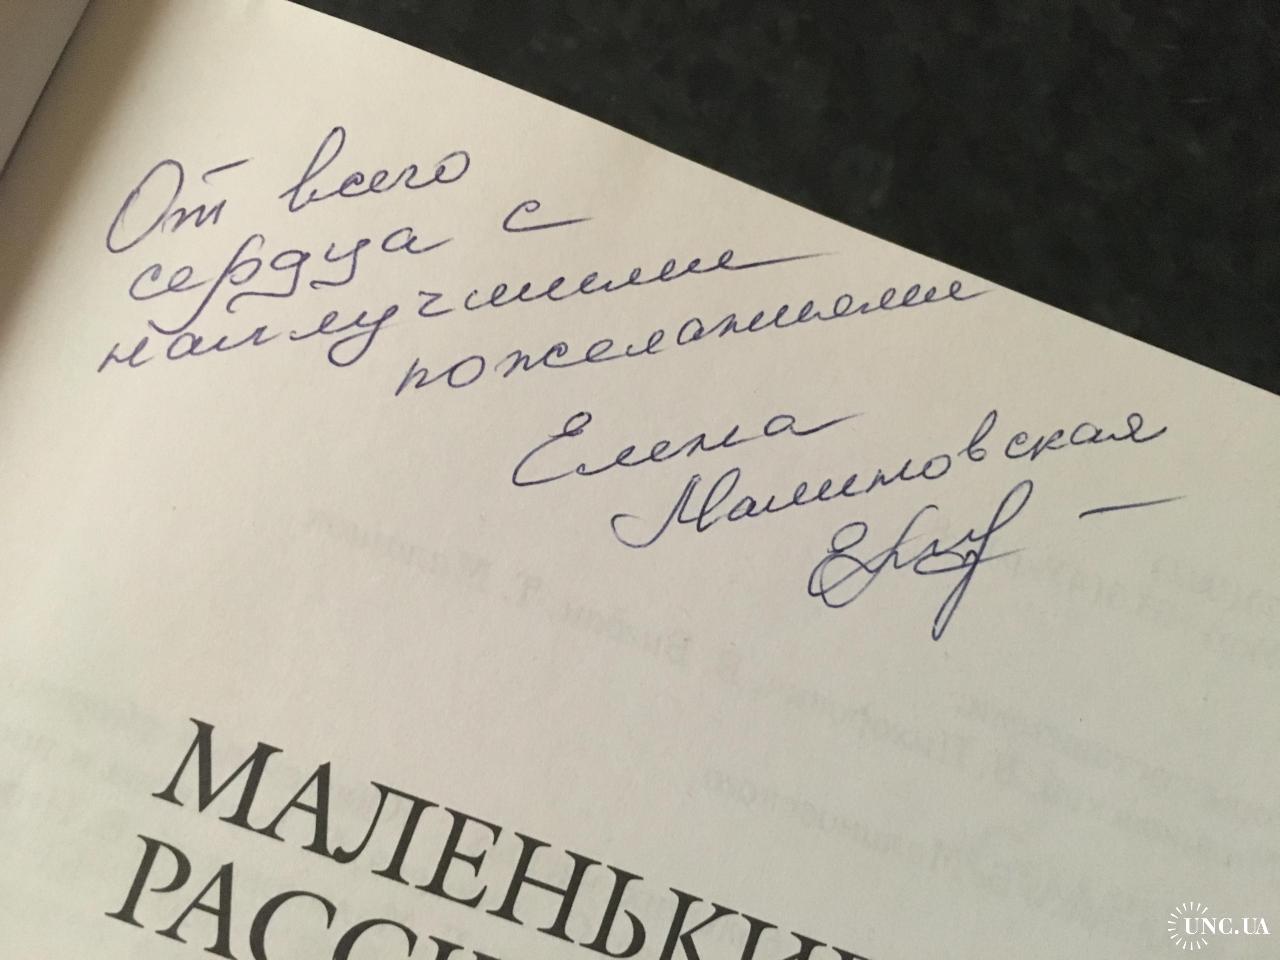 От всего
сердца с
наилучшими
пожеланиями
Елена
Малиновская
МАЛЕНЬКИ
РАСС
UNC.UA